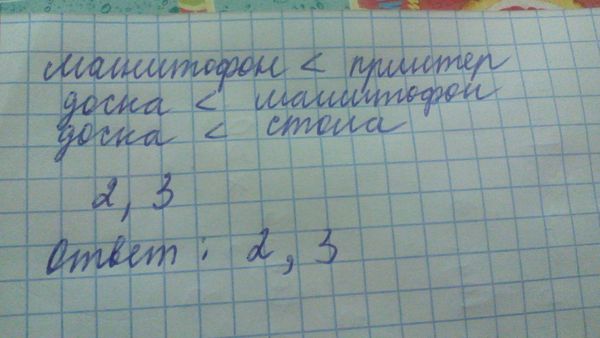 магнитофон < принтер
доска < магнитофон
доска < стола
2, 3
Ответ: 2, 3